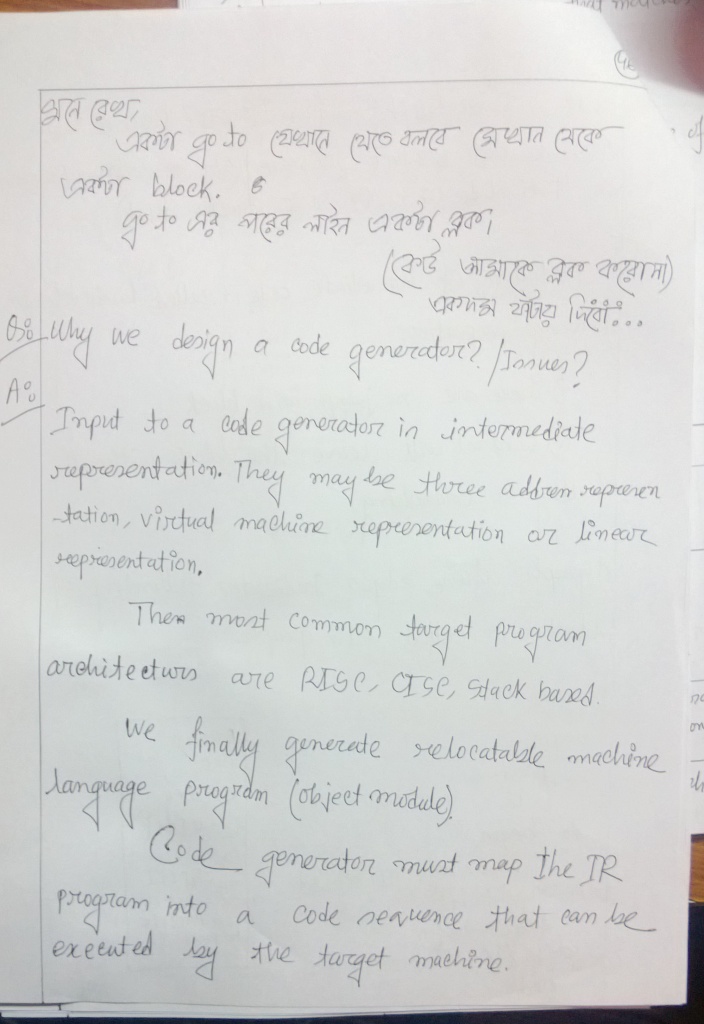 মনে রেখ,
একটা go to যেখানে যেতে বলবে সেখান থেকে
একটা block.
go to এর পরের লাইন একটা ব্লক।
(কেউ আমাকে ব্লক করোনা)
একদম ফাটায় দিবো...
Q: Why we design a code generator? / Issues?
A:
Input to a code generator in intermediate
representation. They may be three address represen
-tation, virtual machine representation or linear
representation.
The most common target program
architecturs are RISC, CISC, stack based.
We finally generate relocatable machine
language program (object module).
Code generator must map the IR
program into a code sequence that can be
executed by the target machine.